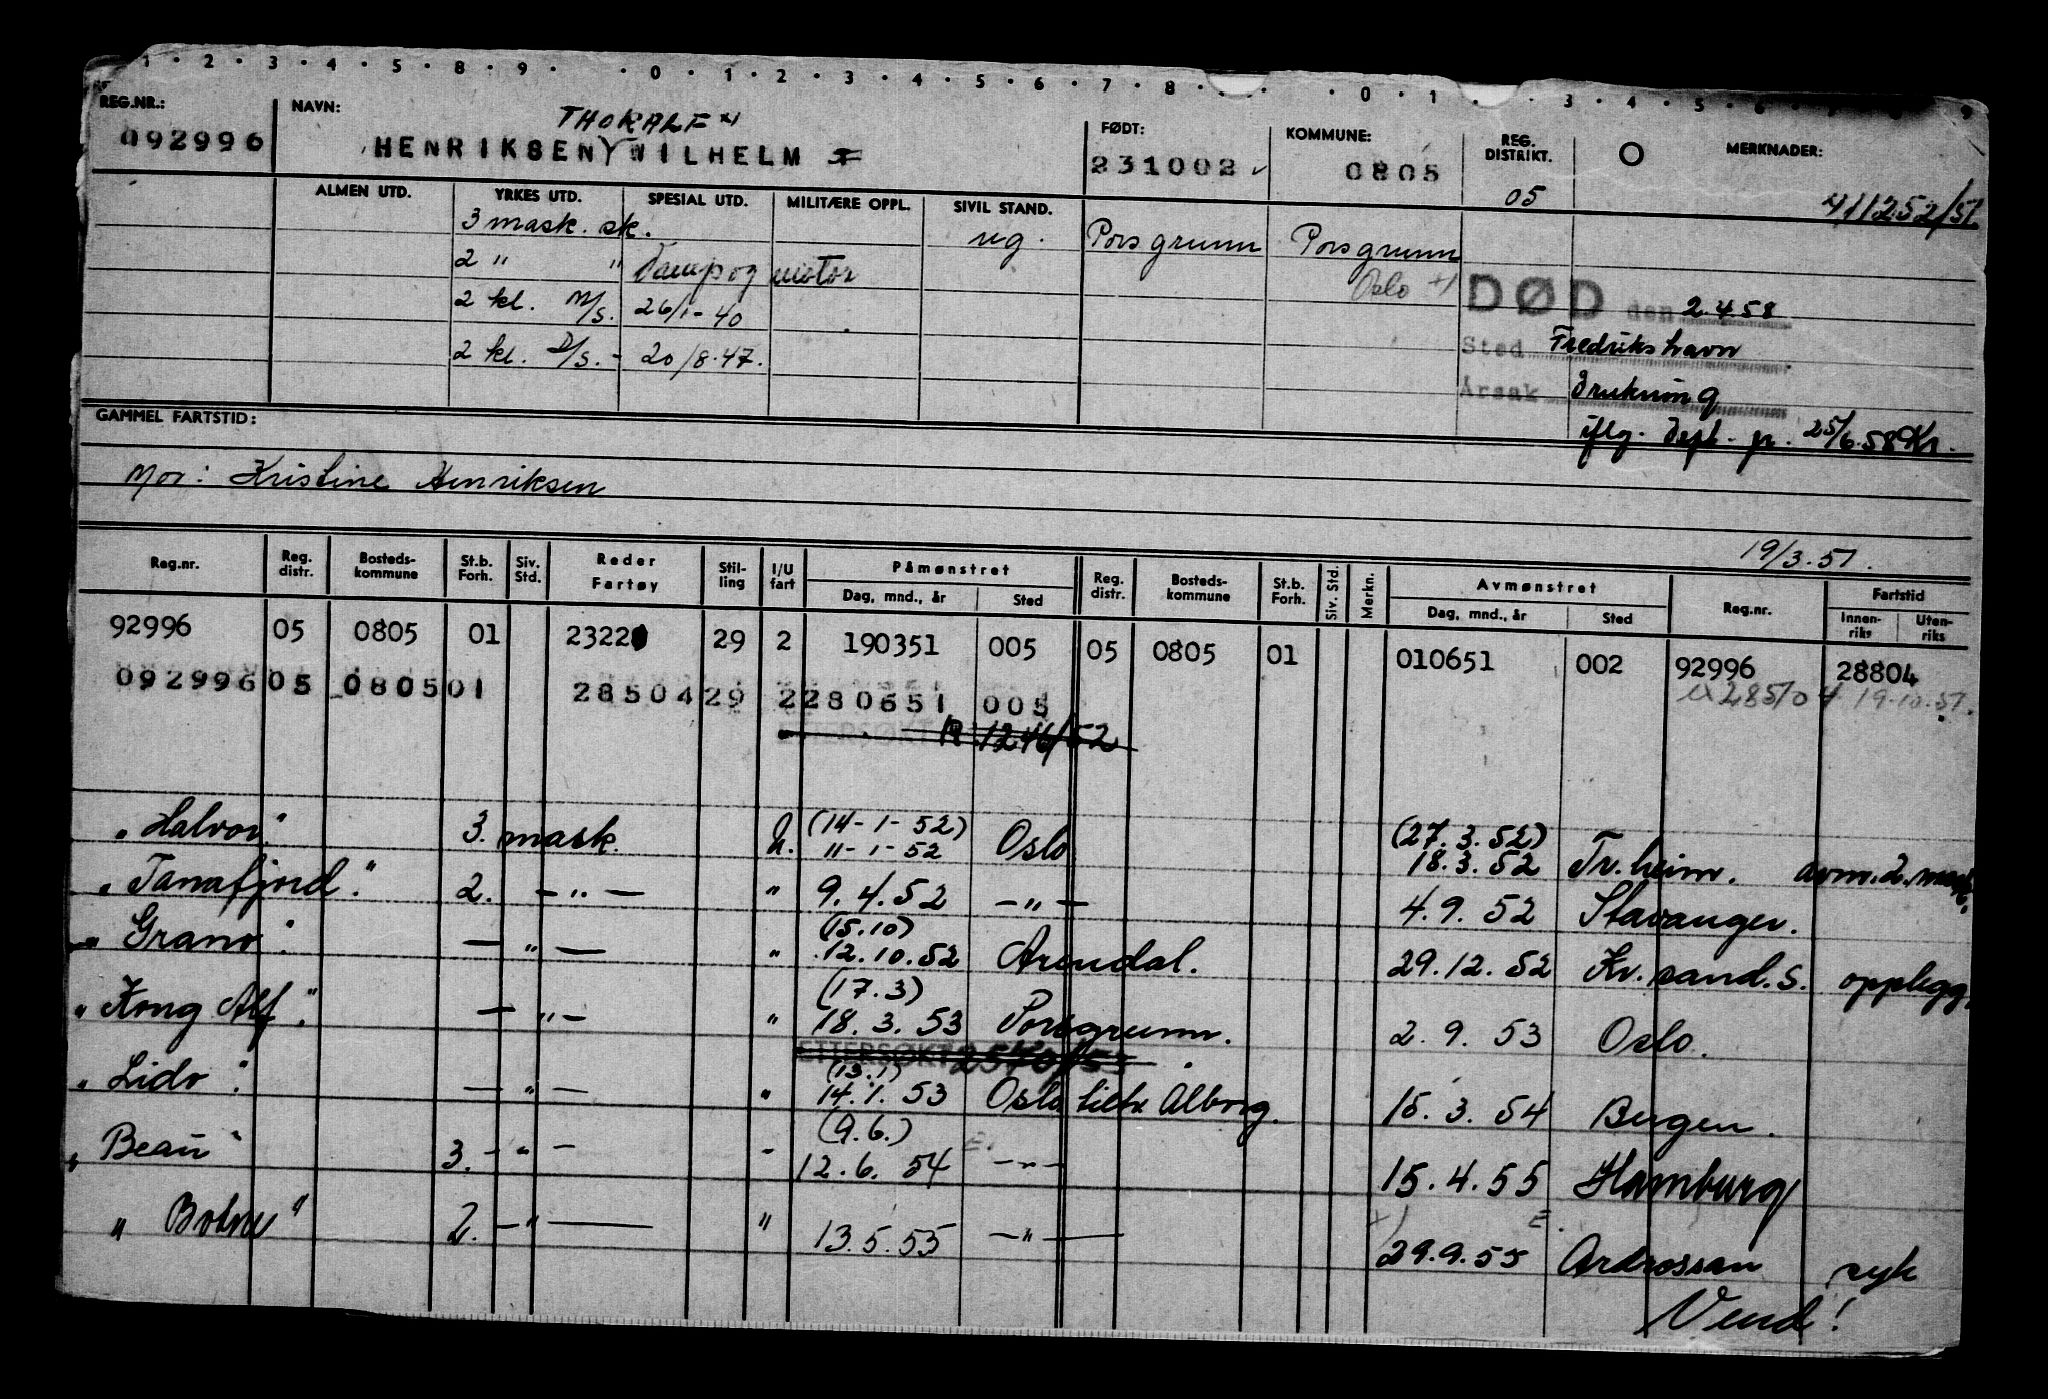 1 · 2 · 3 · 4 · 5 · 8 · 9 · · 0 · 1 · 2 · 3 · 4 · 5 · 6 · 7 · 8 · · · 0 · 1 · · 3 · 4 · 5 · 6 · 7 · 8 · 9
REG.NR.: NAVN: FØDT: KOMMUNE: REG. DISTRIKT. MERKNADER:
THORALF x)
092996 HENRIKSEN WILHELM 231002 0805
05 411252/51
ALMEN UTD. YRKES UTD. SPESIAL UTD. MILITÆRE OPPL. SIVIL STAND.
3 mask. sk. ug. Porsgrunn Porsgrunn
2 " " Damp og motor Oslo x)
2 kl. M/S. 26/1-40 DØD den 2.4.58
2 kl. D/S. - 20/8.47. Sted Fredrikshavn
Årsak Drukning
iflg. Dept. p. 25/6.58 Kr.
GAMMEL FARTSTID:
Mor: Kristine Henriksen
19/3.51.
Reg.nr. Reg. distr. Bosteds- kommune St.b. Forh. Siv. Std. Reder Fartøy Stil- ling I/U fart Påmønstret Dag, mnd., år Sted Reg. distr. Bosteds- kommune St.b. Forh. Siv. Std. Merkn. Avmønstret Dag, mnd., år Sted Reg.nr. Fartstid Innen- riks Uten- riks
92996 05 0805 01 2322 29 2 190351 005 05 0805 01 010651 002 92996 28804
092996 05 0805 01 28504 29 2 280651 005 28510 4 19.10.51.
ETTERSØKT 1246/52
"Halvor" 3. mask. U. (14-1-52) 11-1-52 Oslo (27.3.52) 18.3.52 Tr.heim. avm. 2. mask.
"Tanafjord." 2. - " - " 9.4.52 - " - 4.9.52 Stavanger.
"Grano". - " - " (15.10) 12.10.52 Arendal. 29.12.52 Kr.sand.S. opplegg.
"Kong Alf". - " - " (17.3) 18.3.53 Porsgrunn. 2.9.53 Oslo.
ETTERSØKT 2540/53
"Lido". - " - " (13.1) 14.1.53 Oslo tiltr. Alborg. 15.3.54 Bergen.
"Beau" 3. - " - " (9.6.) 12.6.54 - " - 15.4.55 Hamburg
"Botne" 2. - " - " 13.5.55 - " - 29.9.55 Ardrossan syk
Vend!